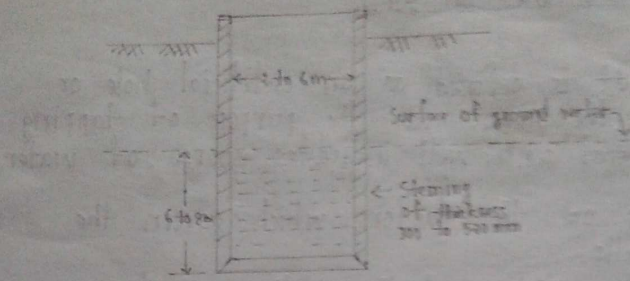 2 to 6m
Surface of ground water
6 to 8m
Steening
of thickness
300 to 520 mm